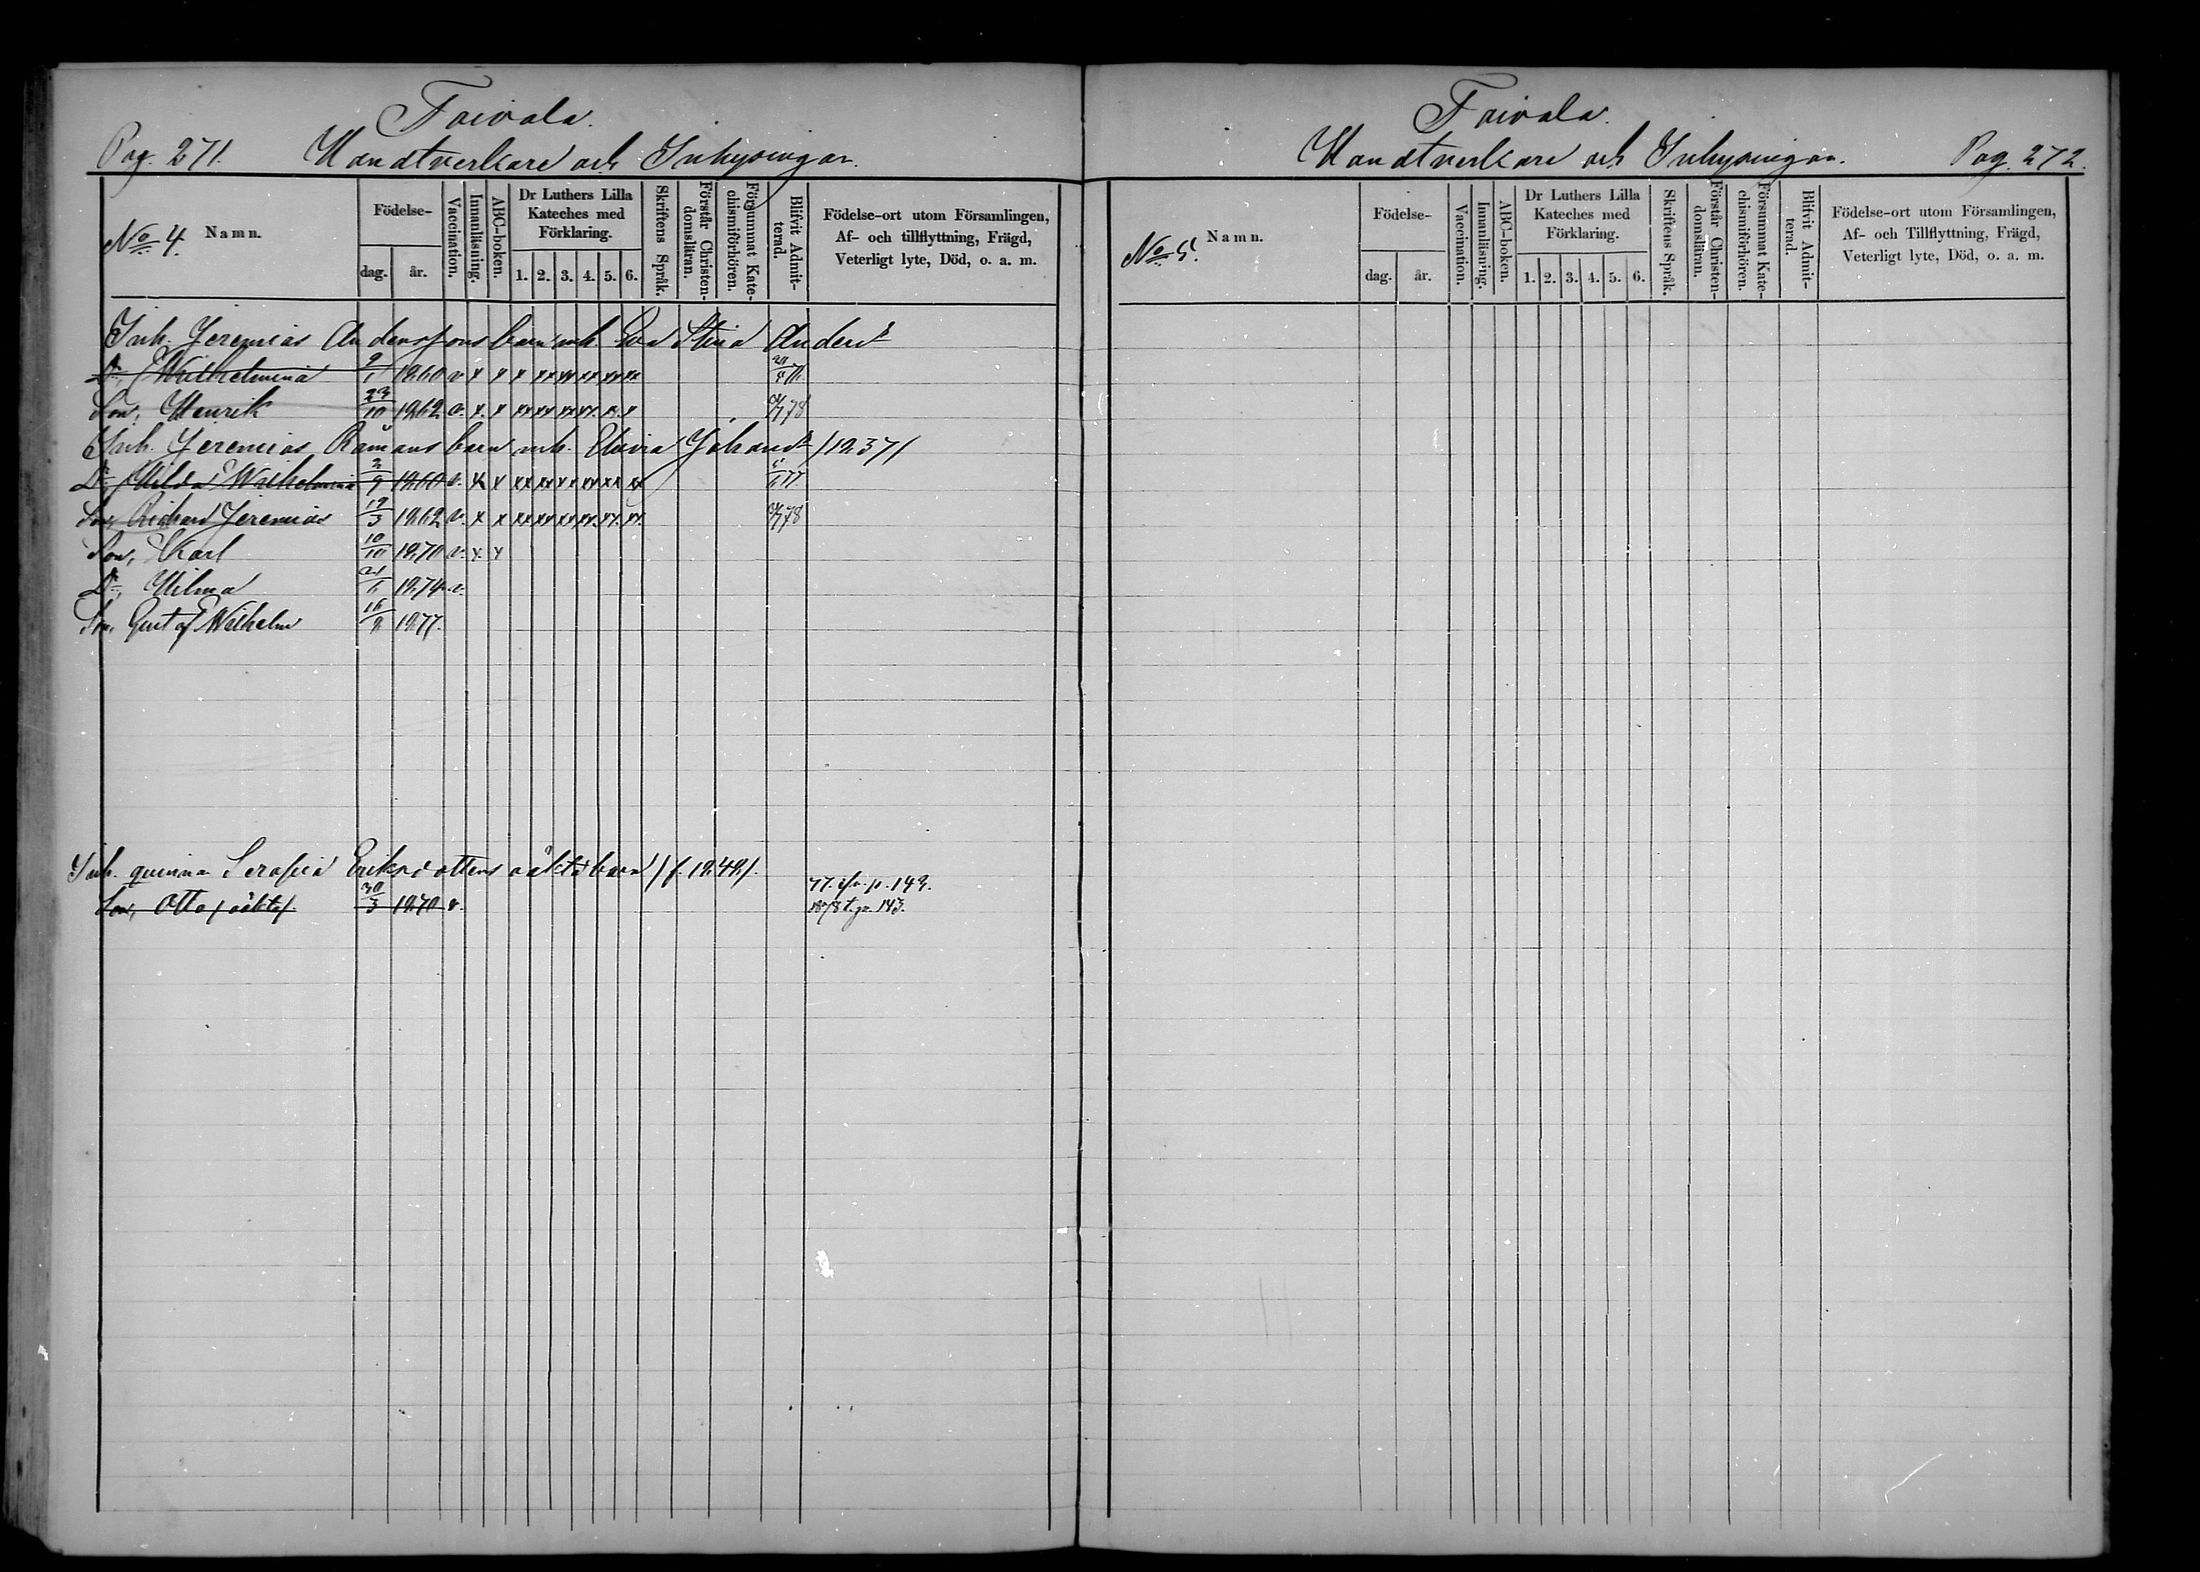 Toivola.
Pag. 271. Handtverkare och Inhysingar.
No 4. Namn.
Födelse-
dag. år.
Vaccination.
Innanläsning.
ABC-boken.
Dr Luthers Lilla Kateches med Förklaring.
1. 2. 3. 4. 5. 6.
Skriftens Språk.
Förstår Christendomsläran.
Försummat Katechismiförhören.
Blifvit Admitterad.
Födelse-ort utom Församlingen, Af- och tillflyttning, Frägd, Veterligt lyte, Död, o. a. m.
Inh. Jeremias Anderssons barn mh. Eva Stina Andersd.
Dr, Wilhelmina 1860 v x x x xx xx xx xx xx
Son, Henrik 23/10 1862 v. x. x xx xx xx xx. x. x 78
Inh. Jeremias Råmans barn mh. Johansd. /1237/
Dr Hilda Wilhelmina 2/9 1860 v. x x xx xx xx xx xx xx 77
Son, Richard Jeremias 12/3 1862 v. x x xx xx xx xx. xx. xx. 78
Son, Karl 10/10 1870 v. x. x
Dr, Hilma 1874 v.
Son, Gustaf Wilhelm 1877.
Inh. qvinnan Serafia Eriksdotters oäkta barn /f. 1849/.
77. ifr. p. 149.
Son, Otto /oäkta/ 30/3 1870 v. 1878 t. p. 143.
Toivola.
Handtverkare och Inhysingar. Pag. 272.
No 5. Namn.
Födelse-
dag. år.
Vaccination.
Innanläsning.
ABC-boken.
Dr Luthers Lilla Kateches med Förklaring.
1. 2. 3. 4. 5. 6.
Skriftens Språk.
Förstår Christendomsläran.
Försummat Katechismiförhören.
Blifvit Admitterad.
Födelse-ort utom Församlingen, Af- och Tillflyttning, Frägd, Veterligt lyte, Död, o. a. m.